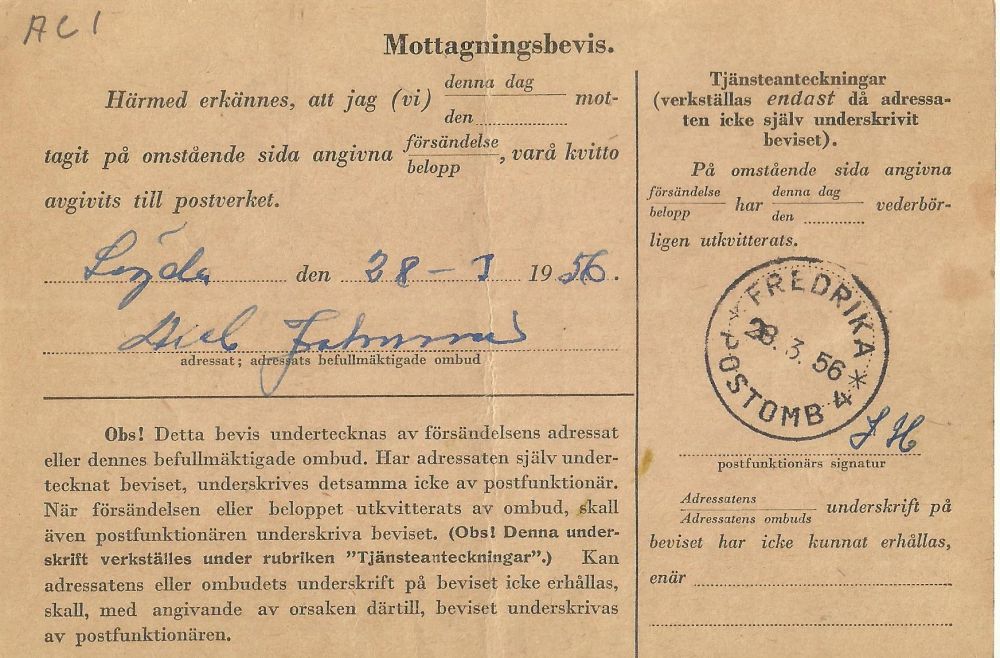 AC 1
Mottagningsbevis.
Härmed erkännes, att jag (vi) denna dag / den mot-
tagit på omstående sida angivna försändelse / belopp, varå kvitto
avgivits till postverket.
den 28 - 3 1956.
adressat; adressats befullmäktigade ombud
Obs! Detta bevis undertecknas av försändelsens adressat
eller dennes befullmäktigade ombud. Har adressaten själv under-
tecknat beviset, underskrives detsamma icke av postfunktionär.
När försändelsen eller beloppet utkvitterats av ombud, skall
även postfunktionären underskriva beviset. (Obs! Denna under-
skrift verkställes under rubriken ”Tjänsteanteckningar”.) Kan
adressatens eller ombudets underskrift på beviset icke erhållas,
skall, med angivande av orsaken därtill, beviset underskrivas
av postfunktionären.
Tjänsteanteckningar
(verkställas endast då adressa-
ten icke själv underskrivit
beviset).
På omstående sida angivna
försändelse / belopp har denna dag / den vederbör-
ligen utkvitterats.
FREDRIKA
28. 3. 56
* POSTOMB 4 *
postfunktionärs signatur
Adressatens / Adressatens ombuds underskrift på
beviset har icke kunnat erhållas,
enär